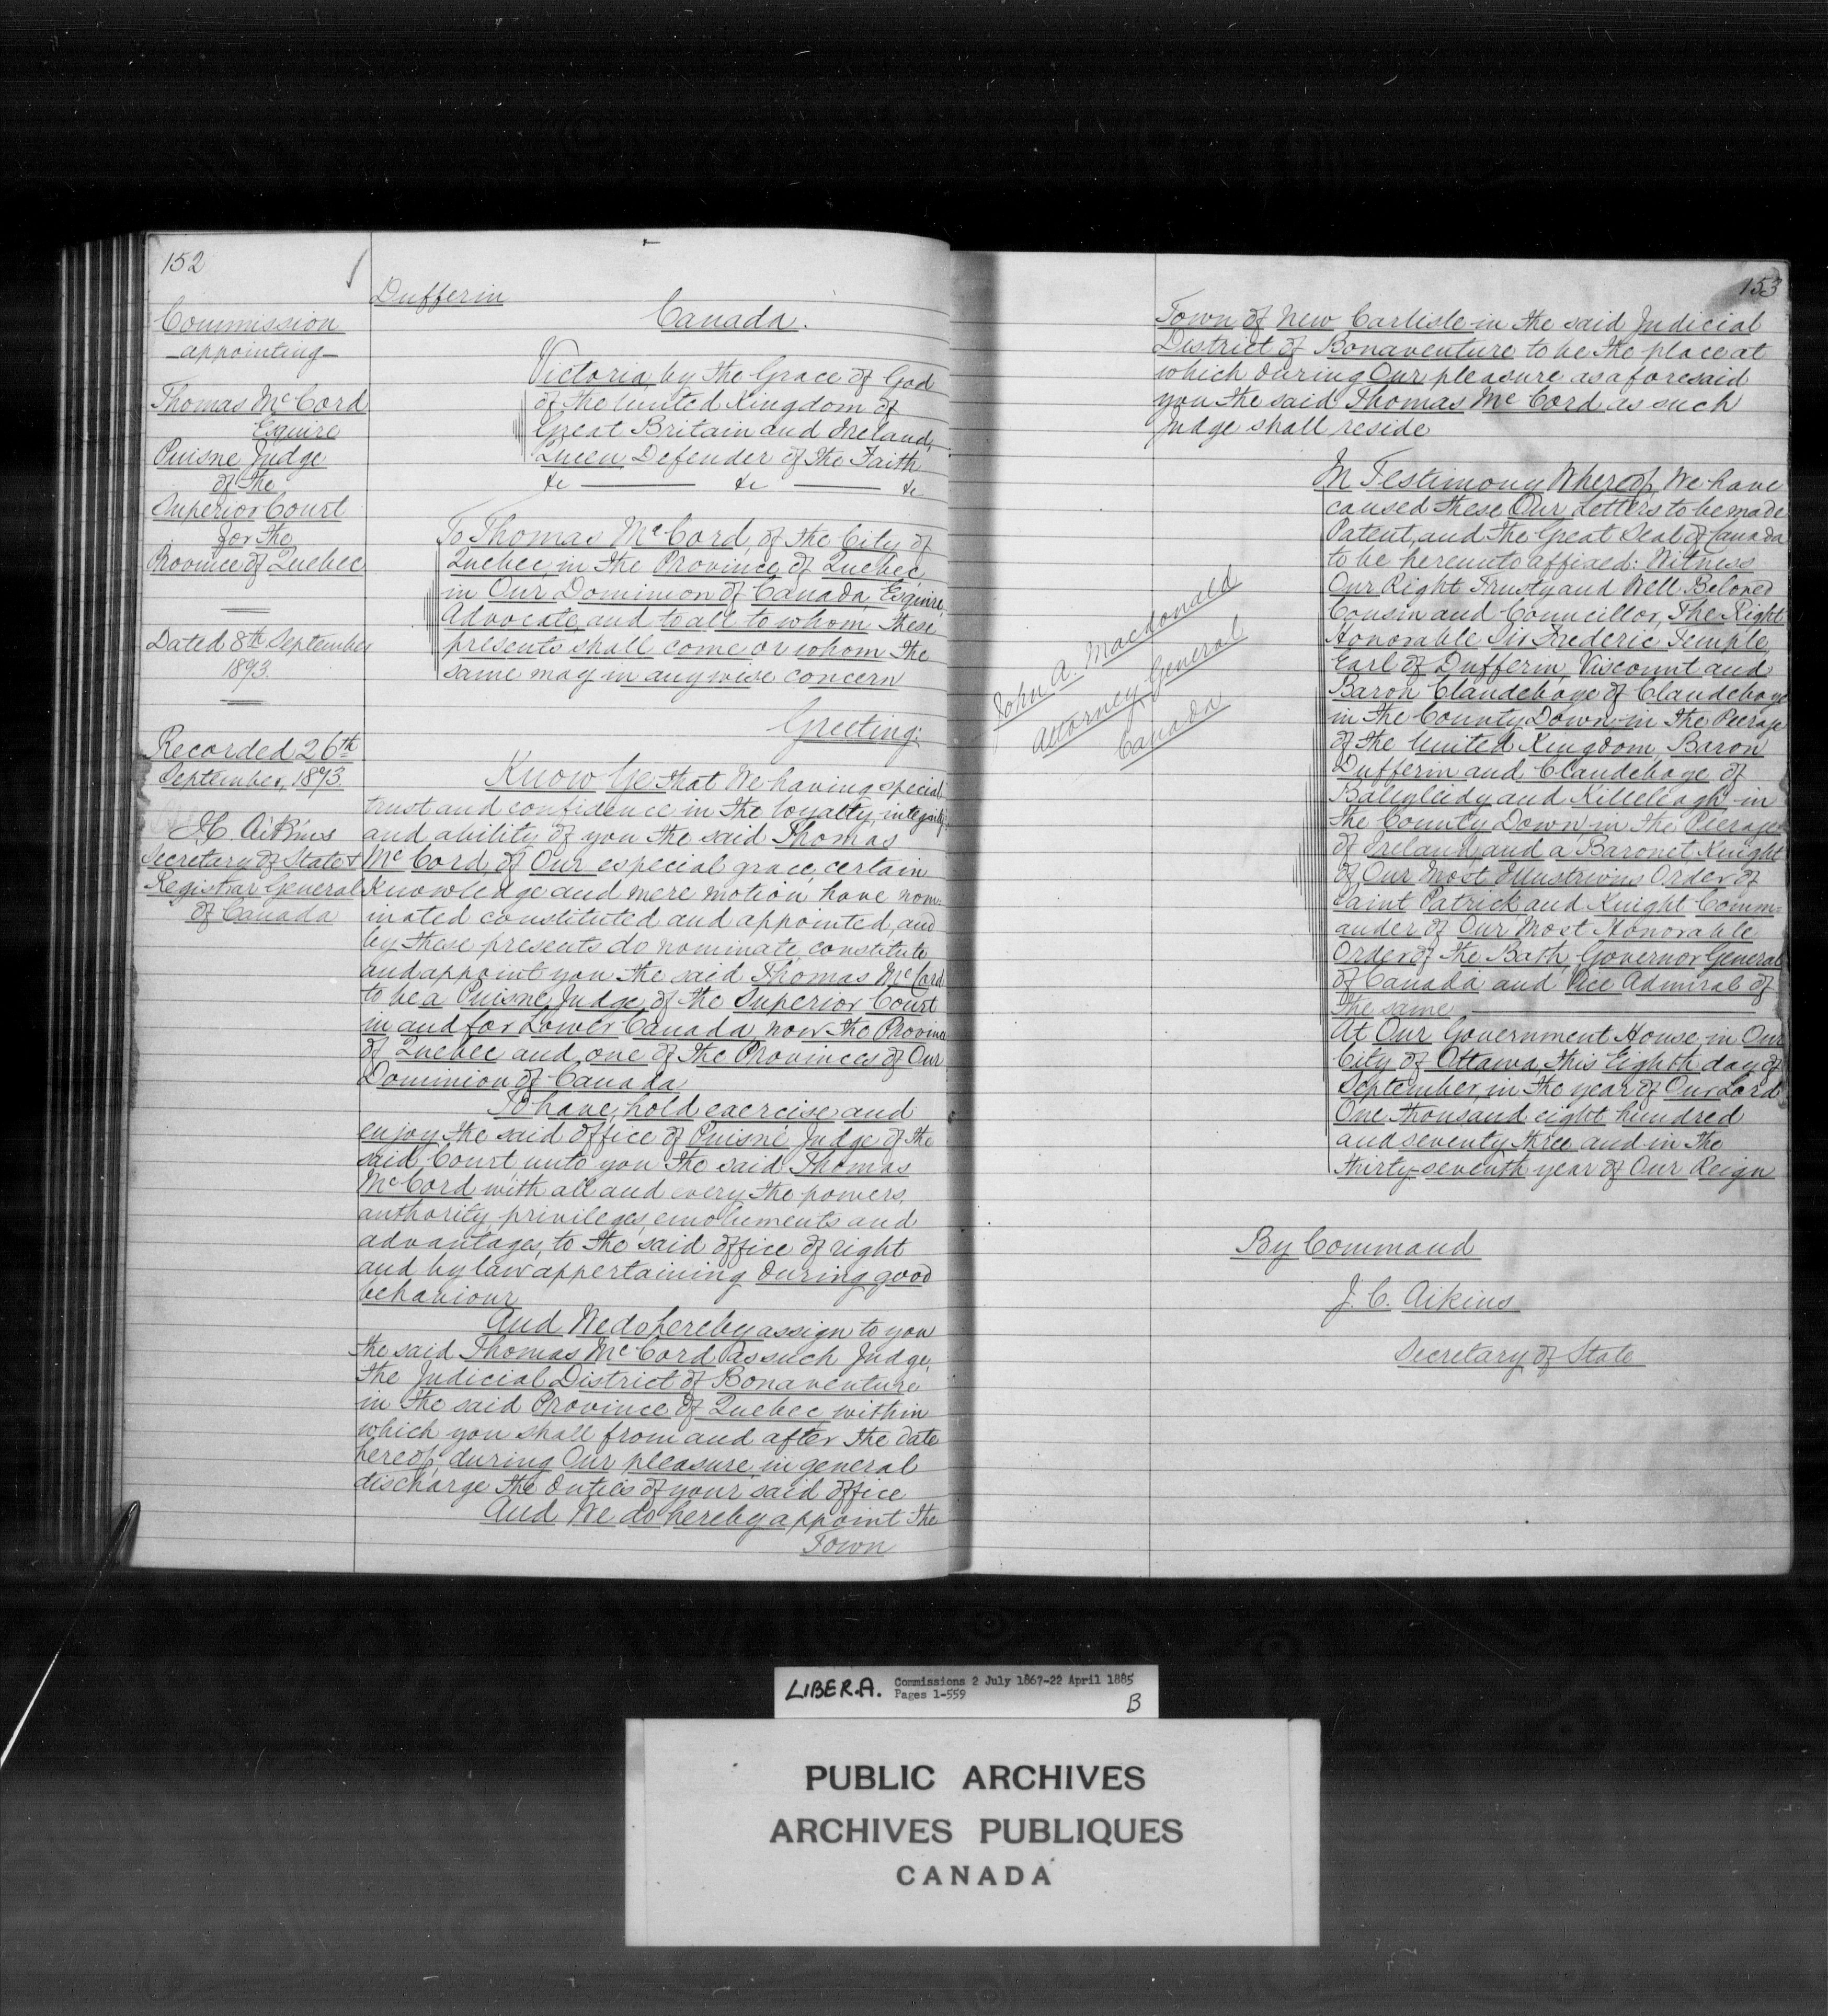 152
Commission
appointing
Thomas McCord
Esquire
Puisne Judge
of the
Superior Court
for the
Province of Quebec
Dated 8th September
1873.
Recorded 26th
September, 1873.
J.C. Aikins
Secretary of State &
Registrar General
of Canada
Dufferin
Canada.
Victoria, by the Grace of God
of the United Kingdom of
Great Britain and Ireland,
Queen, Defender of the Faith
&c &c &c
To Thomas McCord, of the City of
Quebec, in the Province of Quebec,
in Our Dominion of Canada, Esquire,
Advocate, and to all to whom these
presents shall come or whom the
same may in anywise concern
Greeting:
Know Ye that We having special
trust and confidence in the loyalty, integrity,
and ability of you the said Thomas
McCord, of Our especial grace, certain
knowledge and mere motion have nom-
inated constituted and appointed, and
by these presents do nominate, constitute
and appoint you the said Thomas McCord
to be a Puisne Judge, of the Superior Court
in and for Lower Canada, now the Province
of Quebec and one of the Provinces of Our
Dominion of Canada
To have, hold exercise and
enjoy the said office of Puisné Judge of the
said Court unto you the said Thomas
McCord with all and every the powers,
authority, privileges, emoluments and
advantages, to the said office of right
and by law appertaining during good
behaviour
And We do hereby assign to you
the said Thomas McCord as such Judge,
the Judicial District of Bonaventure
in the said Province of Quebec within
which you shall from and after the date
hereof, during Our pleasure, in general
discharge the duties of your said office
And We do hereby appoint the
Town
153
Town of New Carlisle in the said Judicial
District of Bonaventure to be the place at
which during Our pleasure as aforesaid
you the said Thomas McCord as such
Judge shall reside
John A. Macdonald
Attorney General
Canada
In Testimony Whereof, We have
caused these Our Letters to be made
Patent, and the Great Seal of Canada
to be hereunto affixed: Witness
Our Right Trusty and Well Beloved
Cousin and Councillor, The Right
Honorable Sir Frederic Temple,
Earl of Dufferin, Viscount and
Baron Clandeboye of Clandeboye
in the County Down in the Peerage
of the United Kingdom, Baron
Dufferin and Clandeboye of
Ballyleidy and Killeleagh in
the County Down in the Peerage
of Ireland and a Baronet Knight
of Our Most Illustrious Order of
Saint Patrick, and Knight Comm-
ander of Our Most Honorable
Order of the Bath, Governor General
of Canada and Vice Admiral of
the same
At Our Government House, in Our
City of Ottawa, this Eighth day of
September, in the year of Our Lord
One thousand eight hundred
and seventy three and in the
thirty-seventh year of Our Reign
By Command
J. C. Aikins
Secretary of State
LIBER.A. Commissions 2 July 1867-22 April 1885
Pages 1-559
B
PUBLIC ARCHIVES
ARCHIVES PUBLIQUES
CANADA